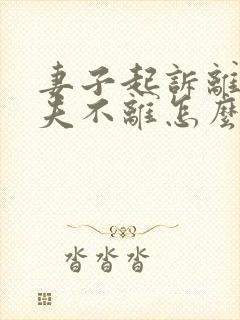 妻子起訴離
夫不離怎麼
沓沓沓